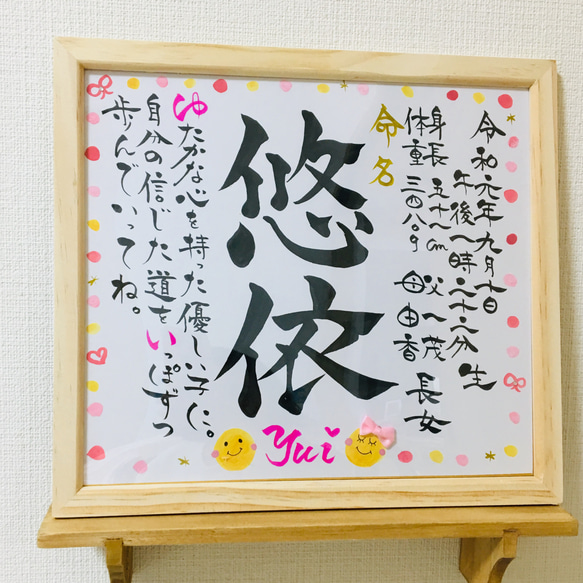 令和元年九月十日
午後一時二十二分 生
身長 五十一cm 父 一茂
体重 三四八〇g 母 由香 長女
命名
悠依
ゆたかな心を持った優しい子に。
自分の信じた道をいっぽずつ
歩んでいってね。
Yui